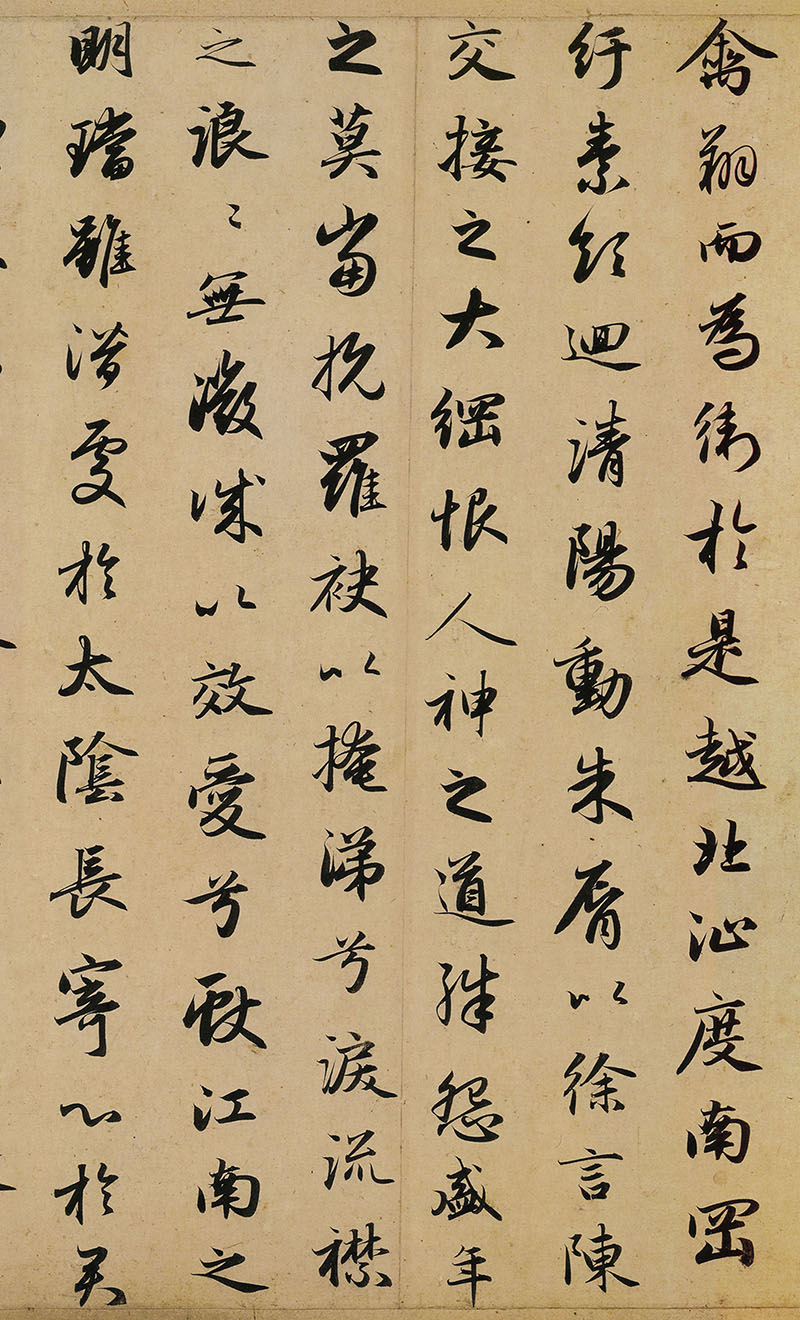 禽翔而為衛於是越北沚度南岡
紆素領迴清陽動朱脣以徐言陳
交接之大綱恨人神之道殊怨盛年
之莫當抗羅袂以掩涕兮淚流襟
之浪〻無微誠以效愛兮獻江南之
明璫雖潛處於太陰長寄心於君